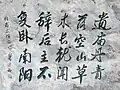 遺庙丹青
落空山草
木长猶闻
辞后主不
复卧南阳